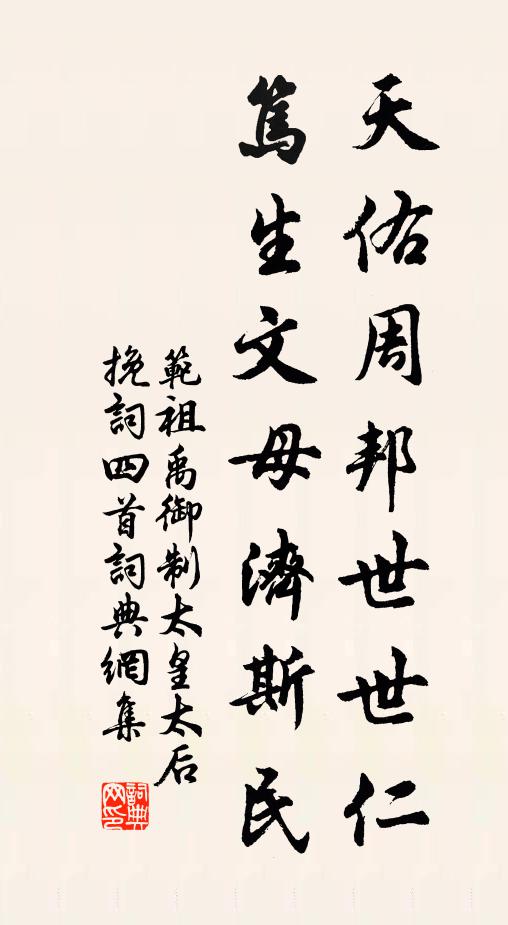 天佑周邦世世仁
篤生文母濟斯民
範祖禹御制太皇太后
挽詞四首詞典網集
詞典
网印